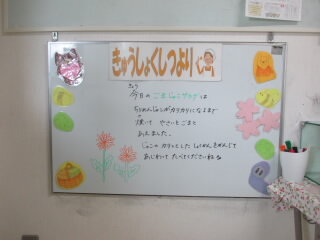 きゅうしょくしつより
きょう
今日の ごまじゃこサラダ は
ちりめんじゃこがカリカリになるまで
焼いて やさいとごまと
あえました。
じゃこの カリッとした しょくかんをかんじて
あじわって たべてくださいね